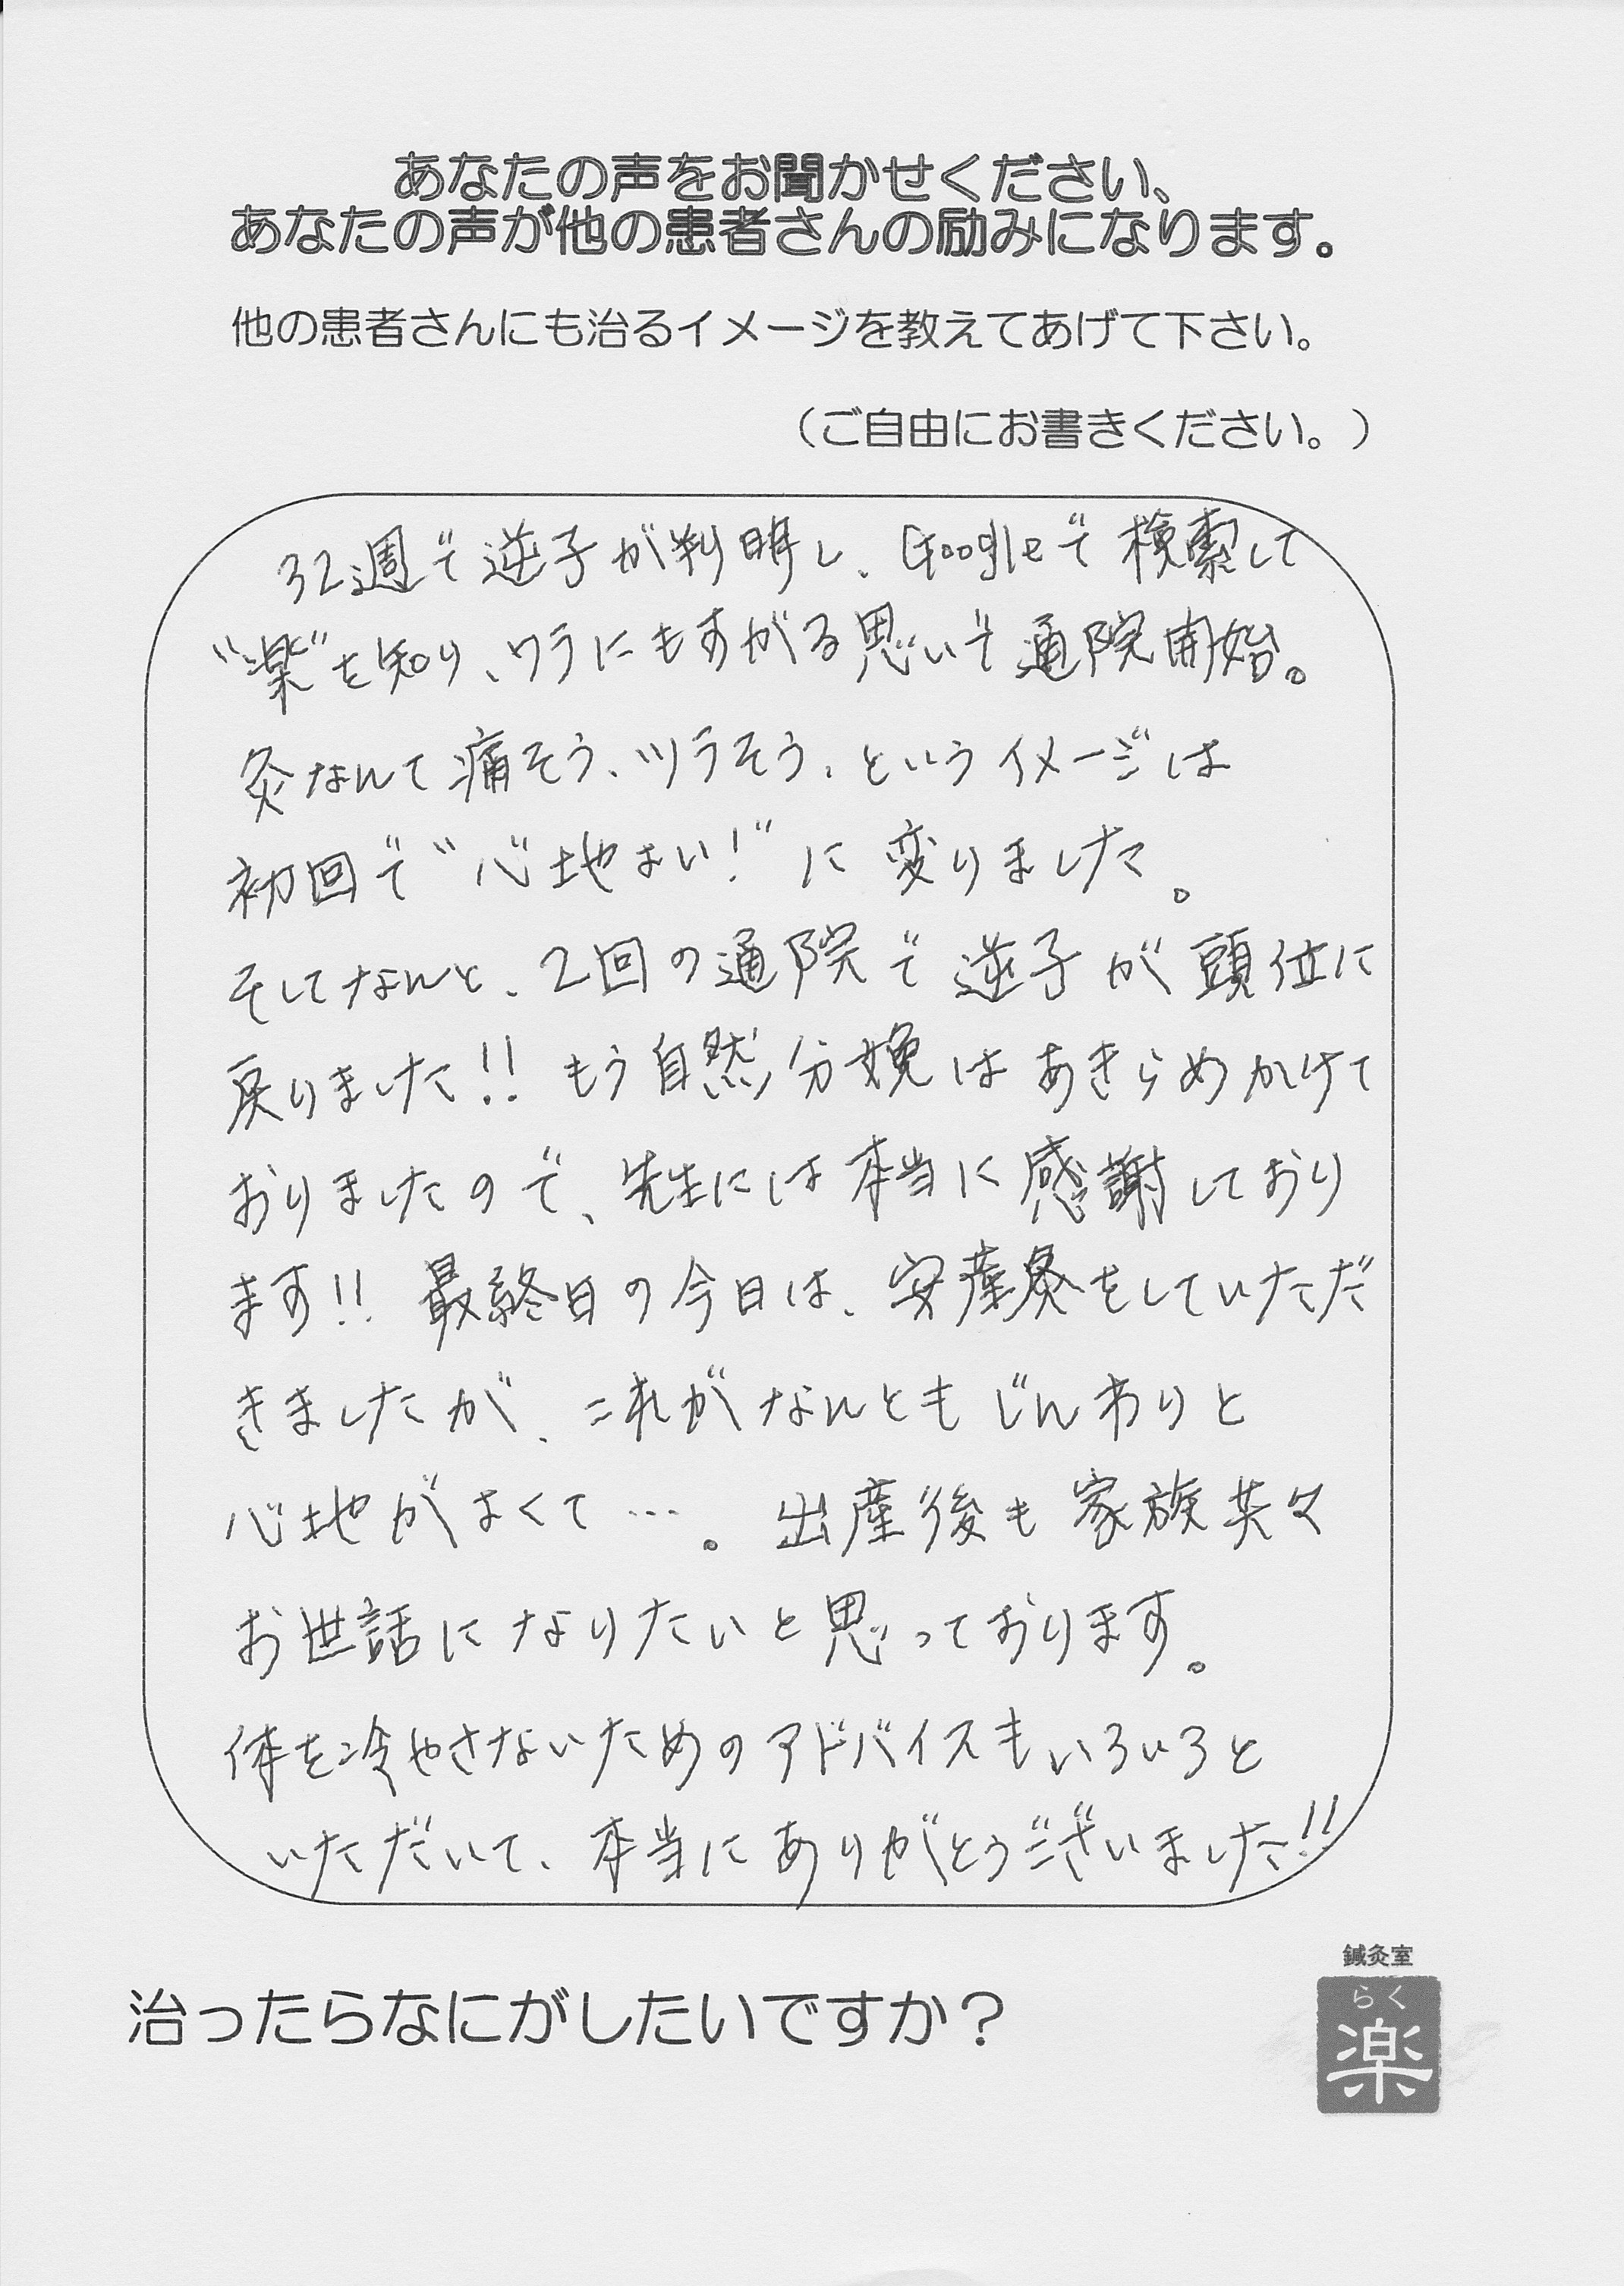 あなたの声をお聞かせください、
あなたの声が他の患者さんの励みになります。
他の患者さんにも治るイメージを教えてあげて下さい。
（ご自由にお書きください。）
32週で逆子が判明し、Googleで検索して
"楽"を知り、ワラにもすがる思いで通院開始。
灸なんて痛そう、ツラそう、というイメージは
初回で"心地よい！"に変りました。
そしてなんと、2回の通院で逆子が頭位に
戻りました!! もう自然分娩はあきらめかけて
おりましたので、先生には本当に感謝しており
ます!! 最終日の今日は、安産灸をしていただ
きましたが、これがなんともじんわりと
心地がよくて…。出産後も家族共々
お世話になりたいと思っております。
体を冷やさないためのアドバイスもいろいろと
いただいて、本当にありがとうございました!!
治ったらなにがしたいですか？
鍼灸室
らく
楽